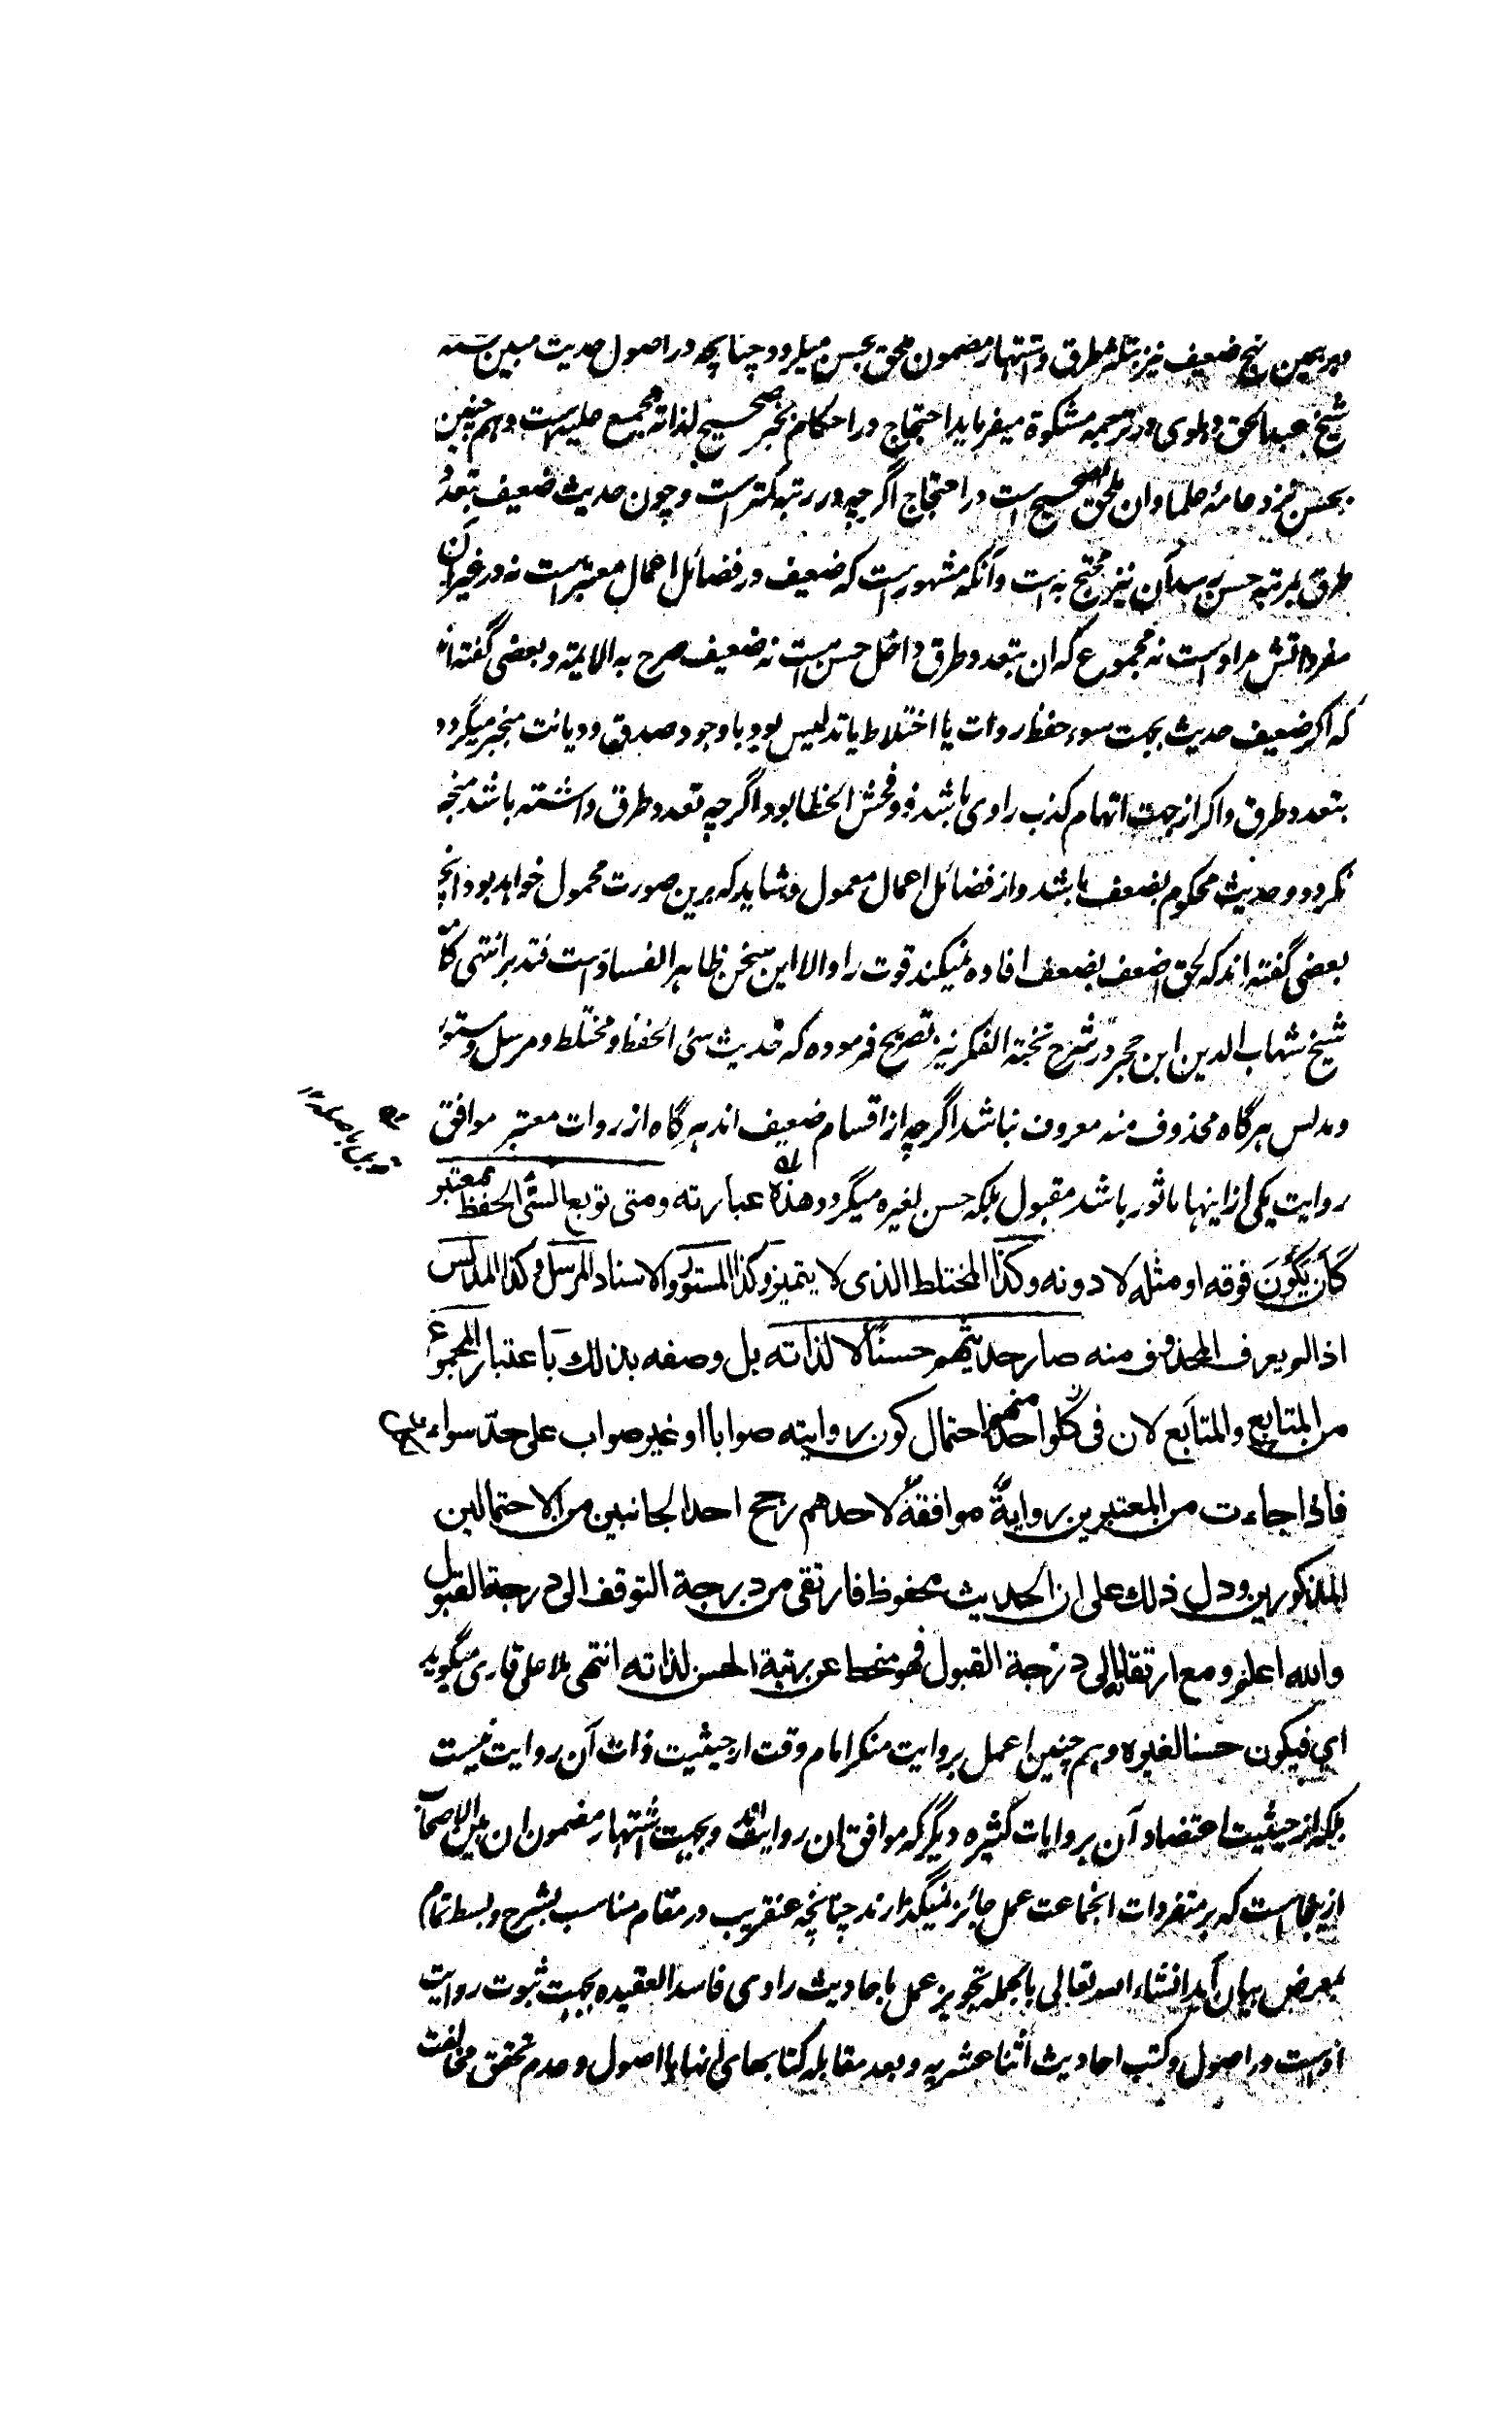 و بر همین نهج ضعیف نیز بتکثر طرق و اشتهار مضمون ملحق بحسن میگردد چنانچه در اصول حدیث مبین شده
شیخ عبدالحق دهلوی در ترجمه مشکوة میفرماید احتجاج در احکام بخبر صحیح لذاته مجمع علیه است و هم چنین
بحسن نزد عامهٔ علما و ان ملحق بصحیح است در احتجاج اگر چه در رتبه کمتر است و چون حدیث ضعیف بتعدد
طرق بمرتبه حسن برسد آن نیز محتج به است و آنکه مشهور است که ضعیف در فضائل اعمال معتبر است نه در غیر آن
مفرداتش مراد است نه مجموع که ان بتعدد طرق داخل حسن است نه ضعیف صرح به الایمة و بعضی گفته اند
که اگر ضعیف حدیث بجهت سوء حفظ روات یا اختلاط یا تدلیس بود با وجود صدق و دیانت منجبر میگردد
بتعدد طرق و اگر از جهت اتهام کذب راوی باشد و فحش الخطا بود اگر چه تعدد طرق داشته باشد منجبر
نگردد و حدیث محکوم بضعف باشد و از فضائل اعمال معمول و شاید که برین صورت محمول خواهد بود انچه
بعضی گفته اند که لحوق ضعیف بضعف افاده نمیکند قوت را و الا این سخن ظاهر الفساد است فتدبر انتهی کلامه
شیخ شهاب الدین ابن حجر در شرح نخبة الفکر نیز تصریح فرموده که حدیث سئ الحفظ و مختلط و مرسل و مستور
و مدلس هرگاه محذوف منه معروف نباشد اگر چه از اقسام ضعیف اند هرگاه از روات معتبر موافق
روایت یکی از اینها ماثور باشد مقبول بلکه حسن لغیره میگردد و هذه عبارته و متی توبع السئ الحفظ بمعتبر
کأن یکون فوقه او مثله لا دونه و کذا المختلط الذی لا یتمیز و کذا المستور و الاسناد المرسل و کذا المدلس
اذا لم یعرف المحذوف منه صار حدیثهم حسنًا لا لذاته بل وصفه بذلک باعتبار المجموع
من المتابِع و المتابَع لان فی کل واحد منهم احتمال کون روایته صوابا او غیر صواب علی حدّ سواء
فاذا جاءت من المعتبرین روایةٌ موافقةٌ لاحدهم رجح احد الجانبین من الاحتمالین
المذکورین و دل ذلک علی ان الحدیث محفوظ فارتقی من درجة التوقف الی درجة القبول
والله اعلم و مع ارتقائه الی درجة القبول فهو منحط عن رتبة الحسن لذاته انتهی ملا علی قاری میگوید
ای فیکون حسنا لغیره و هم چنین عمل بروایت منکر امام وقت از حیثیت ذات آن روایت نیست
بلکه از حیثیت اعتضاد آن بروایات کثیره دیگر که موافق ان روایت اند و بجهت اشتهار مضمون ان بین الاصحاب
ازینجاست که بر متفردات انجماعت عمل جائز نمیگذارند چنانچه عنقریب در مقام مناسب بشرح و بسط تمام
بمعرض بیان آید انشاء الله تعالی بالجمله تجویز عمل باحادیث راوی فاسد العقیده بجهت ثبوت روایت
اوست در اصول و کتب احادیث اثنا عشریه و بعد مقابله کتابهای انها با اصول و عدم تحقق مخالفت